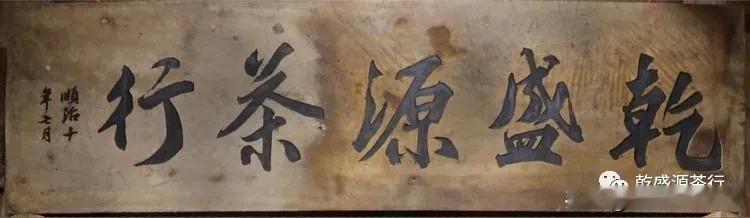 乾盛源茶行
順治十
年七月
乾盛源茶行